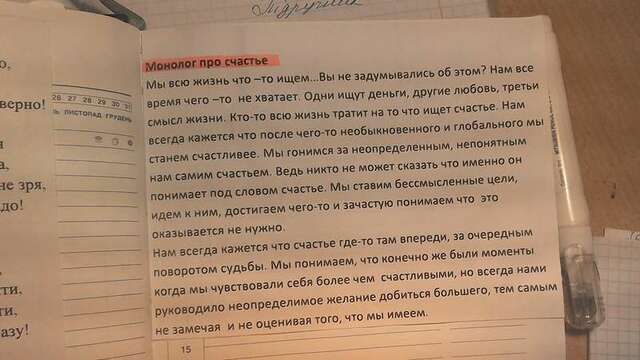 Підручник
о,
верно!
я
а,
не зря,
до!
ти,
ти,
азу!
26 27 28 29 30 31
Ь ЛИСТОПАД ГРУДЕНЬ
Монолог про счастье
Мы всю жизнь что –то ищем...Вы не задумывались об этом? Нам все
время чего –то  не хватает. Одни ищут деньги, другие любовь, третьи
смысл жизни. Кто-то всю жизнь тратит на то что ищет счастье. Нам
всегда кажется что после чего-то необыкновенного и глобального мы
станем счастливее. Мы гонимся за неопределенным, непонятным
нам самим счастьем. Ведь никто не может сказать что именно он
понимает под словом счастье. Мы ставим бессмысленные цели,
идем к ним, достигаем чего-то и зачастую понимаем что  это
оказывается не нужно.
Нам всегда кажется что счастье где-то там впереди, за очередным
поворотом судьбы. Мы понимаем, что конечно же были моменты
когда мы чувствовали себя более чем  счастливыми, но всегда нами
руководило неопределимое желание добиться большего, тем самым
не замечая  и не оценивая того, что мы имеем.
15